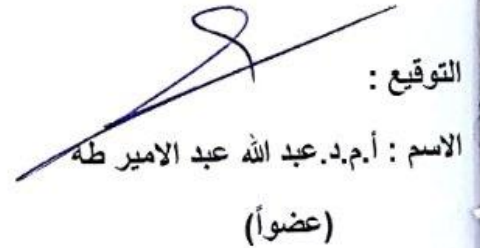 التوقيع :
الاسم : أ.م.د.عبد الله عبد الامير طه
(عضواً)